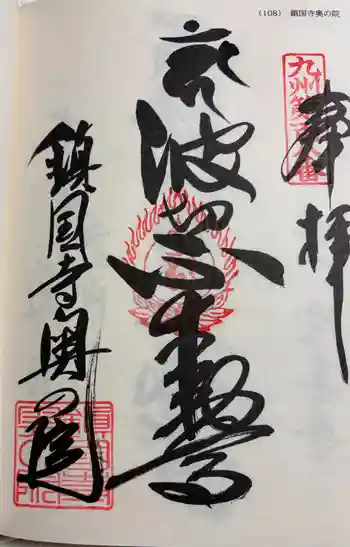 (108) 鎮国寺奥の院
奉拝
波切不動尊
鎮国寺奥の院